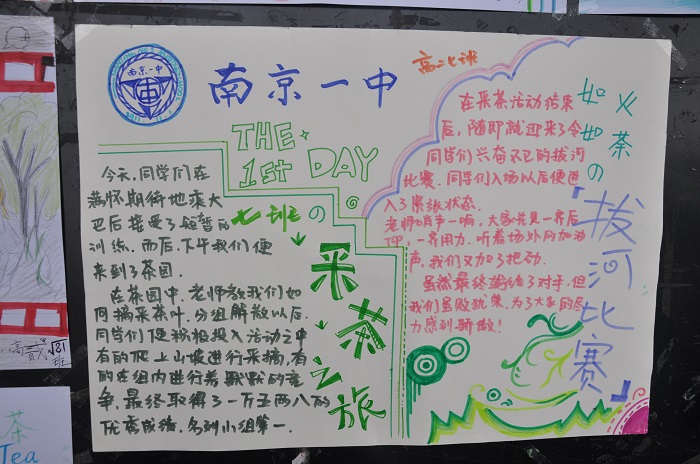 南京一中
高二七班
南京一中
THE
1st DAY
七班の
采茶之旅
今天,同学们在
满怀期待地乘大
巴后接受了短暂的
训练.而后,下午我们便
来到了茶园.
在茶园中,老师教我们如
何摘采茶叶.分组解散以后,
同学们便积极投入活动之中
有的爬上山坡进行采摘,有
的在组内进行着默默的竞
争,最终取得了一万五两八的
优秀成绩,名列小组第一.
如火如荼の
『拔河比赛』
在采茶活动结束
后,随即就迎来了令
同学们兴奋不已的拔河
比赛.同学们入场以后便进
入了紧张状态.
老师哨声一响,大家就更一齐后
一齐用力.听着场外的加油
声,我们又加了把劲.
虽然最终输给了对手,但
我们虽败犹荣,为了大家的尽
力感到骄傲!
高二
班
茶
Tea